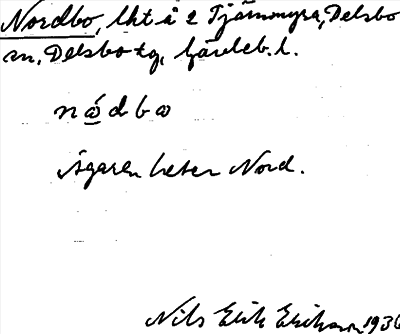 Nordbo, lht å 2 Tjärnmyra, Delsbo
sn, Delsbo tg, Gävleb. l.
nǫ́dbω
Ägaren heter Nord.
Nils Erik Erikson 1936